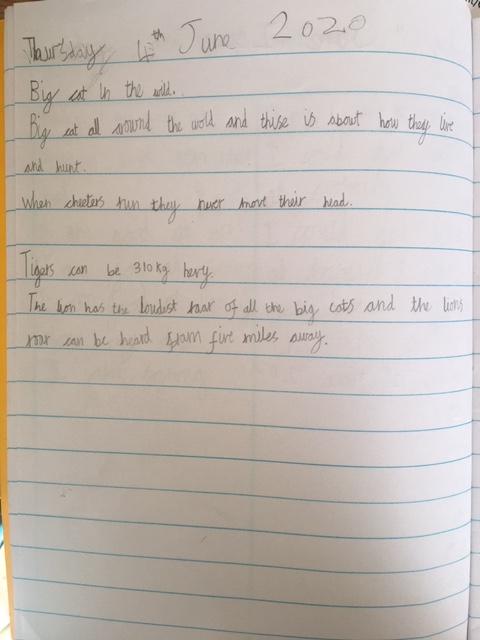 Thursday 4th June 2020
Big cat in the wild.
Big cat all around the wold and thise is about how they live
and hunt.
When cheeters run they never move their head.
Tigers can be 310kg hevy.
The lion has the loudest roar of all the big cats and the lions
roar can be heard fram five miles away.